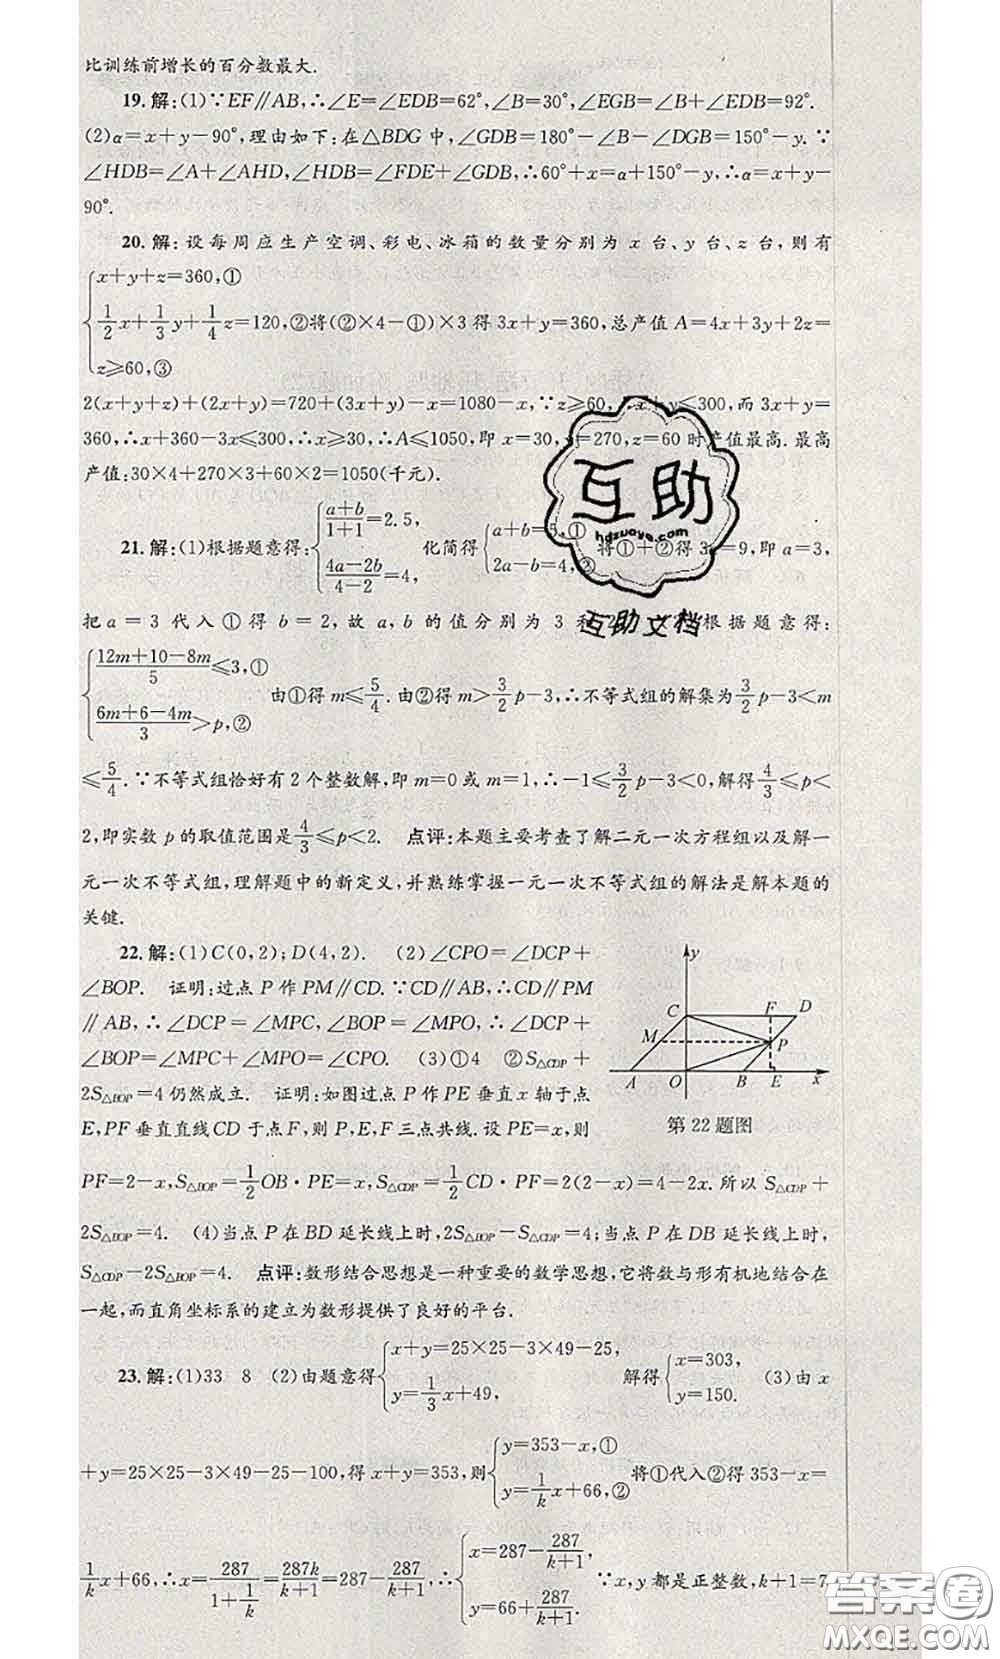 比训练前增长的百分数最大.
19.解:(1)∵EF∥AB,∴∠E=∠EDB=62°,∠B=30°,∠EGB=∠B+∠EDB=92°.
(2)α=x+y-90°,理由如下:在△BDG中,∠GDB=180°-∠B-∠DGB=150°-y.∵
∠HDB=∠A+∠AHD,∠HDB=∠FDE+∠GDB,∴60°+x=α+150°-y,∴α=x+y-
90°.
20.解:设每周应生产空调、彩电、冰箱的数量分别为x台、y台、z台,则有
{x+y+z=360,①
1/2x+1/3y+1/4z=120,②将(②×4-①)×3得3x+y=360,总产值A=4x+3y+2z=
z≥60,③
2(x+y+z)+(2x+y)=720+(3x+y)-x=1080-x,∵z≥60,∴x+y≤300,而3x+y=
360,∴x+360-3x≤300,∴x≥30,∴A≤1050,即x=30,y=270,z=60时产值最高.最高
产值:30×4+270×3+60×2=1050(千元).
21.解:(1)根据题意得:{(a+b)/(1+1)=2.5, (4a-2b)/(4-2)=4, 化简得{a+b=5,① 2a-b=4,② 将①+②得3a=9,即a=3,
把a=3代入①得b=2,故a,b的值分别为3和2. 根据题意得:
{(12m+10-8m)/5≤3,① (6m+6-4m)/3>p,② 由①得m≤5/4.由②得m>3/2p-3,∴不等式组的解集为3/2p-3<m
≤5/4.∵不等式组恰好有2个整数解,即m=0或m=1,∴-1≤3/2p-3<0,解得4/3≤p<
2,即实数p的取值范围是4/3≤p<2. 点评:本题主要考查了解二元一次方程组以及解一
元一次不等式组,理解题中的新定义,并熟练掌握一元一次不等式组的解法是解本题的
关键.
22.解:(1)C(0,2);D(4,2). (2)∠CPO=∠DCP+
∠BOP. 证明:过点P作PM∥CD.∵CD∥AB,∴CD∥PM
∥AB,∴∠DCP=∠MPC,∠BOP=∠MPO,∴∠DCP+
∠BOP=∠MPC+∠MPO=∠CPO. (3)①4 ②S△CDP+
2S△BOP=4仍然成立. 证明:如图过点P作PE垂直x轴于点
E,PF垂直直线CD于点F,则P,E,F三点共线.设PE=x,则
y
C F D
M P
A O B E x
第22题图
PF=2-x,S△BOP=1/2OB·PE=x,S△CDP=1/2CD·PF=2(2-x)=4-2x.所以S△CDP+
2S△BOP=4. (4)当点P在BD延长线上时,2S△BOP-S△CDP=4;当点P在DB延长线上时,
S△CDP-2S△BOP=4. 点评:数形结合思想是一种重要的数学思想,它将数与形有机地结合在
一起,而直角坐标系的建立为数形提供了良好的平台.
23.解:(1)33 8 (2)由题意得{x+y=25×25-3×49-25, y=1/3x+49, 解得{x=303, y=150. (3)由x
+y=25×25-3×49-25-100,得x+y=353,则{y=353-x,① y=1/kx+66,② 将①代入②得353-x=
1/kx+66,∴x=287/(1+1/k)=287k/(k+1)=287-287/(k+1),∴{x=287-287/(k+1), y=66+287/(k+1). ∵x,y都是正整数,k+1=7
互助
hdzuoye.com
互助文档
答案圈
MXQE.COM